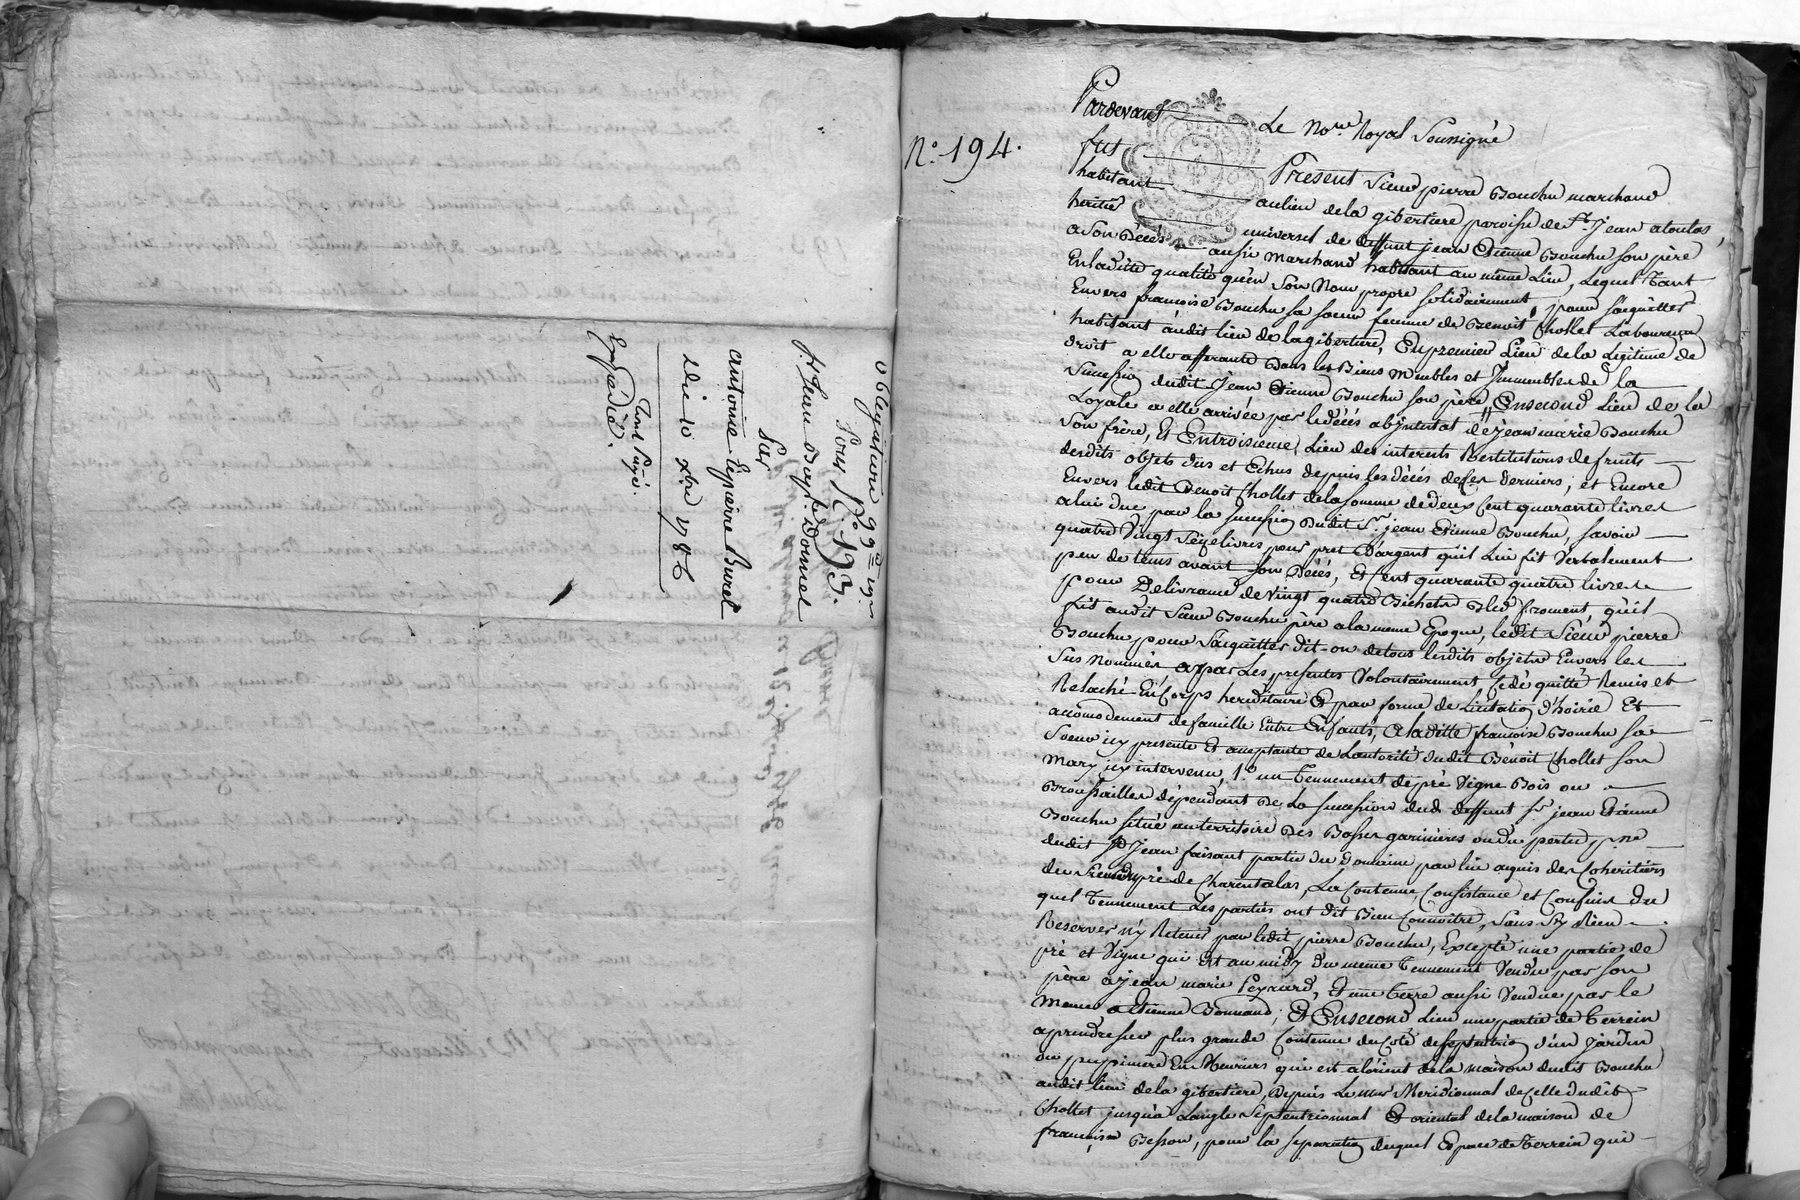 obligation 99# 19s
Pour N.° 193.
Sr Jean Bapt.e Donnet
Par
antoine Lespierre Burel
du 10 xbre 1786
Tout Payé.
Expédié.
N.° 194.
Pardevant Le No.re Royal Soussigné
fut Présent Sieur pierre Bouchu marchand
habitant au lieu de la gibertiere paroisse de St. jean a toulas,
heritier universel de deffunt jean Etienne Bouchu son père
a son Décès aussi marchand habitant au même Lieu, Lequel Tant
En ladite qualité qu'en Son Nom propre solidairement, pour S'acquitter
Envers françoise Bouchu sa soeur femme de Benoit Chollet Laboureur
habitant audit lieu de la gibertiere, En premier Lieu de la Legitime de
droit a elle afferante Dans les Biens Meubles et Immeubles de la
Succession dudit Jean Etienne Bouchu son père, En second Lieu de la
Loyale a elle arrivée par le décés abjntestat de jean marie Bouchu
Son frère, Et En troisieme Lieu des interets Restitutions de fruits
desdits objets dus et Echus depuis les décès de ces derniers; et Encore
Envers ledit Benoit Chollet de la somme de deux Cent quarante livres
a lui due par la succession Dudit Sr. jean Etienne Bouchu, savoir
quatre Vingt Seize livres pour pret D'argent qu'il Lui fit Verbalement
peu de tems avant son Décès, Et Cent quarante quatre livres
pour Délivrance de Vingt quatre Bichets Bled froment, qu'il
fit audit Sieur Bouchu père a la meme Epoque, ledit Sieur pierre
Bouchu pour S'acquitter dit-on de tous lesdits objets Envers les
Sus Nommés a par Les presentes Volontairement Cédé quitté Remis et
Relaché En Corps hereditaire Et par forme de Licitation d'hoirie Et
accomodement de famille Entre Enfants, a laditte françoise Bouchu sa
Soeur icy presente Et acceptante de L'autorité dudit Bénoit Chollet son
Mary icy intervenu, 1.° un Tennement de pré Vigne Bois ou
Broussailles dépendant De La succession dud. deffunt Sr. jean Etienne
Bouchu situé au territoire des Bosses garinieres ou du pertuy, pne
dudit St. Jean faisant partie du Domaine par lui acquis des Coheritiers
de pré de Charentalas, La Contenue, Consistance et Confins Du
quel Tennement Les parties ont dit Bien Connoitre, Sans S'y Rien
Reserver n'y Retenir par ledit pierre Bouchu, Excepté une partie de
pré et Vigne qui Est au midy Du même Tennement Vendu par son
père a jean marie Peyrard, Et une terre aussi Vendue par le
meme a Etienne Bonnand; Et En second Lieu une partie de terrein
a prendre sur plus grande Contenue du coté de Septentrion d'un Jardin
ou pepiniere En Meuriers qui est a l'orient de la maison dudit Bouchu
audit lieu de la gibertiere, Depuis Le mur Meridionnal de Celle dudit
Chollet jusqu'a L'angle Septentrionnal Et oriental de la maison de
françoise Besson, pour la separation duquel Espace de terrein qui